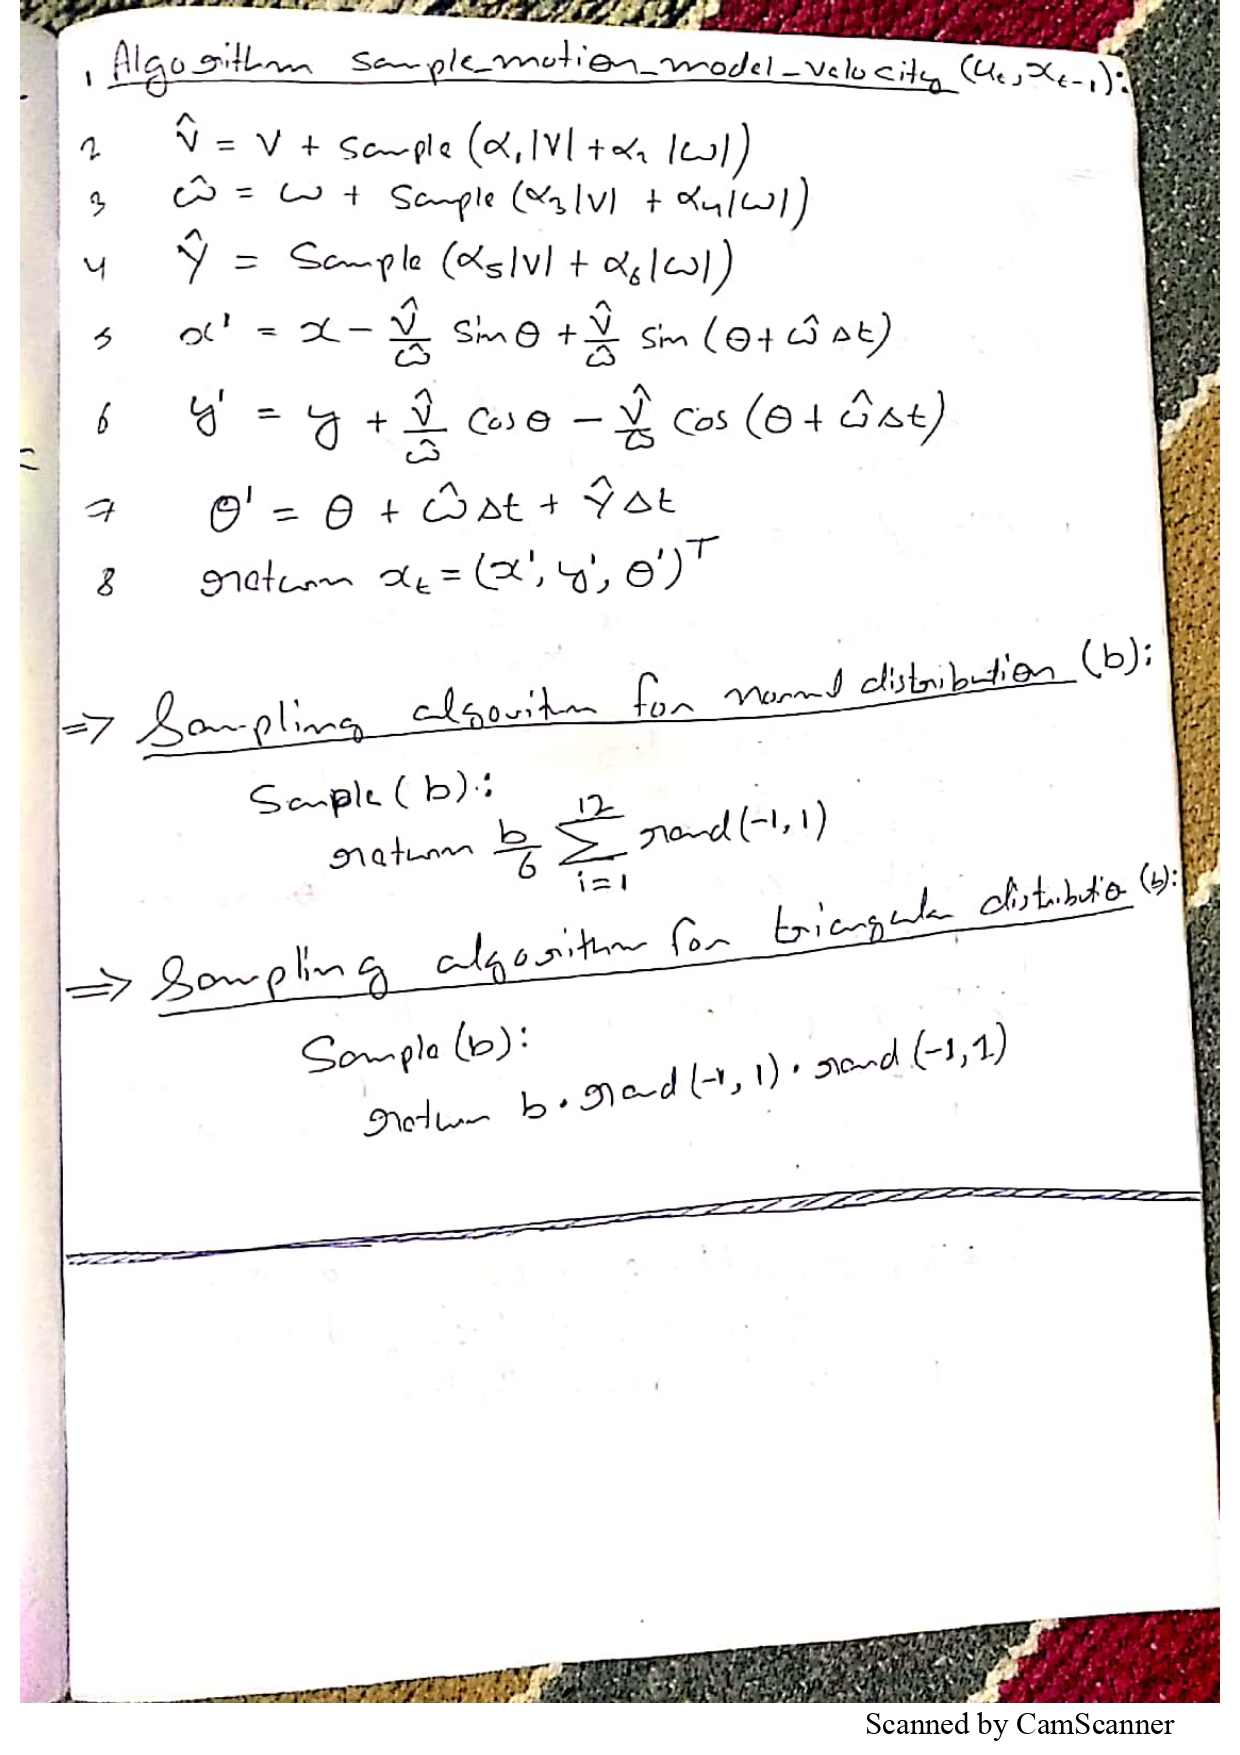 1 Algorithm sample_motion_model_velocity (u_t, x_{t-1}):
2 v̂ = v + sample (α₁|v| + α₂|ω|)
3 ω̂ = ω + Sample (α₃|v| + α₄|ω|)
4 γ̂ = Sample (α₅|v| + α₆|ω|)
5 x' = x - v̂/ω̂ Sin θ + v̂/ω̂ Sin (θ + ω̂ Δt)
6 y' = y + v̂/ω̂ Cos θ - v̂/ω̂ Cos (θ + ω̂ Δt)
7 θ' = θ + ω̂ Δt + γ̂ Δt
8 return x_t = (x', y', θ')ᵀ
⇒ Sampling algorithm for normal distribution (b):
Sample (b):
return b/6 Σ_{i=1}^{12} rand (-1, 1)
⇒ Sampling algorithm for triangular distributio (b):
Sample (b):
return b . rand (-1, 1) . rand (-1, 1)
Scanned by CamScanner